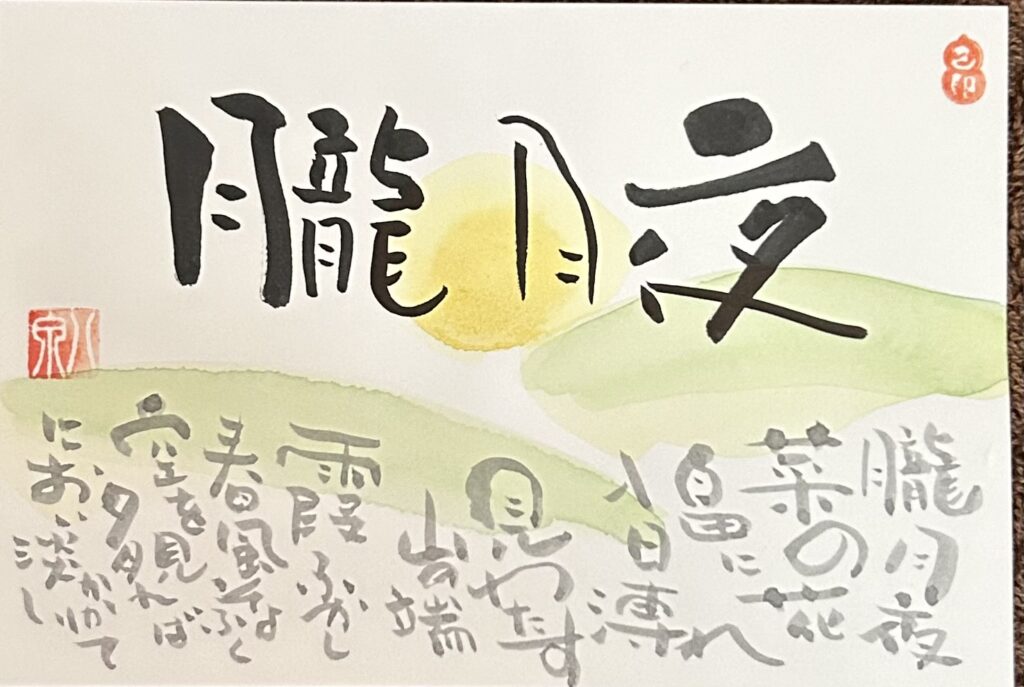 朧月夜
朧月夜
菜の花
畠に
入日薄れ
見わたす
山の端
霞ふかし
春風そよふく
空を見れば
夕月かかりて
におい淡し